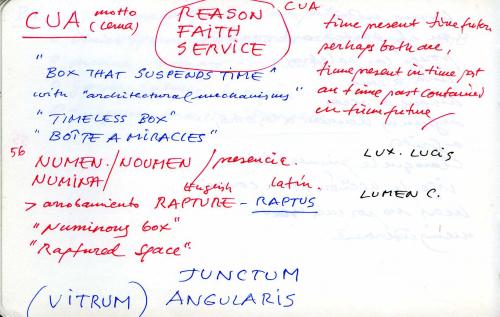 CUA motto
(Lema)
REASON
FAITH
SERVICE
CUA
time present time future
perhaps both are,
time present in time past
an time past contained
in time future
"
BOX THAT SUSPENDS TIME"
with "architectural mechanisms"
"TIMELESS BOX"
"BOÎTE A MIRACLES"
56
NUMEN./NOUMEN/presencia.
NUMINA/
English latin.
> arrobamiento RAPTURE - RAPTUS
"Numinous box"
"Raptured Space".
LUX. LUCIS
LUMEN C.
JUNCTUM
(VITRUM) ANGULARIS